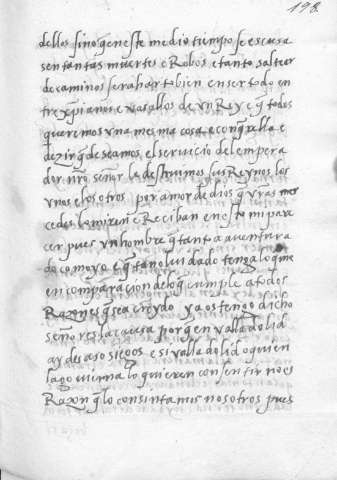 198
dellos sino q̃ en este medio tiempo se escusa
sen tantas muertes e Robos e tanto saltear
de caminos sera harto bien en ser todo en
tre xp̃ianos e vasallos de vn Rey e q̃ todos
queremos vna mesma cosa e con q̃rella e
dezir q̃ deseamos el seruicio del empera
dor nr̃o señor le destruimos sus Reynos los
vnos e los otros por amor de dios q̃ vras mer
cedes lo miren e Reciban en esto mi pare
cer pues vn hombre q̃ tanto a auentura
do como yo e q̃ tan oluidado tengo lo q̃ me
en comparacion de lo q̃ cumple a todos
Razon es q̃ sea creydo ya os tengo dicho
señores la causa por q̃ en valladolid
ay desasosiegos e si valladolid o quien
la gouierna lo quieren consentir no es
Razon q̃ lo consintamos nosotros pues